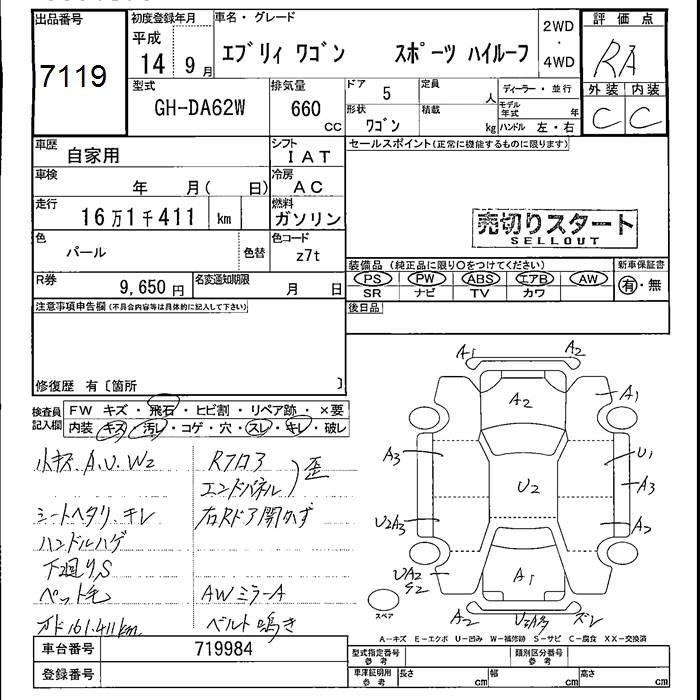 出品番号
7119
初度登録年月
平成
14 9月
車名・グレード
エブリィ ワゴン スポーツ ハイルーフ
2WD
・
4WD
評価点
RA
外装 内装
C C
型式
GH-DA62W
排気量
660
CC
ドア
5
定員
人
形状
ワゴン
積載
kg
ディーラー・並行
モデル年式 年
ハンドル 左・右
車歴
自家用
シフト
IAT
セールスポイント(正常に機能するものに限ります)
車検
年 月( 日)
冷房
AC
走行
16万1千411 km
燃料
ガソリン
売切りスタート
SELLOUT
色
パール
色替
色コード
z7t
装備品 (純正品に限り〇をつけてください)
新車保証書
PS PW ABS エアB AW
SR ナビ TV カワ
有・無
R券
9,650円
名変通知期限
月 日
後日品
注意事項申告欄(不具合内容等は具体的に記入して下さい)
修復歴 有〔箇所 〕
検査員
記入欄
FW キズ・飛石・ヒビ割・リペア跡・×要
内装 キズ・汚レ・コゲ・穴・スレ・キレ・破レ
小キズ.A.U.W2
シートヘタリ.キレ
ハンドルハゲ
下廻りS
ペット毛
メド161.411km
Rフロア
エンドパネル
歪
右Rドア開かず
AWミラーA
ベルト鳴き
A1 A2
A2
A1
A3
U1
A3
U2
U2A3
A2
UA2
S2
A1
スペア
A2 U2A3 ズレ
A-キズ E-エクボ U-凹み W-補修跡 S-サビ C-腐食 XX-交換済
車台番号
719984
登録番号
型式指定番号
参考
類別区分番号
参考
車庫証明用
参考
長さ cm
幅 cm
高さ cm